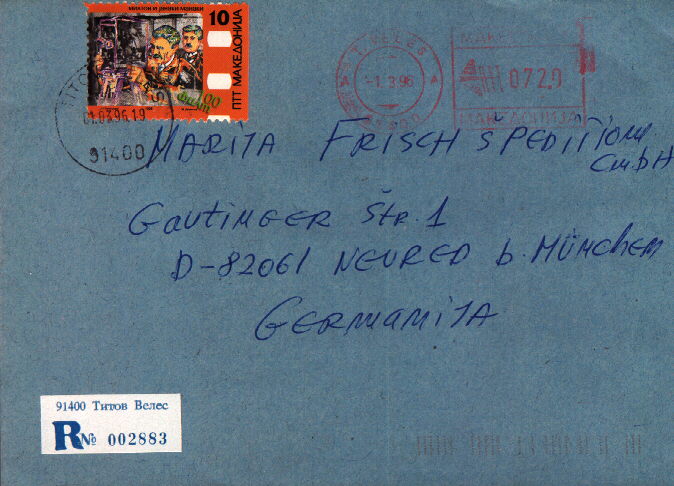 МИЛТОН И ЈАНАКИ МАНАКИ
10
ПТТ МАКЕДОНИЈА
100
филм
01.03.96.19
91400
T. VELES
-1. 3. 96
91400
MAKE
072.0
МАКЕДОНИЈА
MARITA FRISCH SPEDITIONS
GmbH
Gautinger Str. 1
D-82061 NEURED b. MÜNCHEN
GERMANIJA
91400 Титов Велес
R № 002883